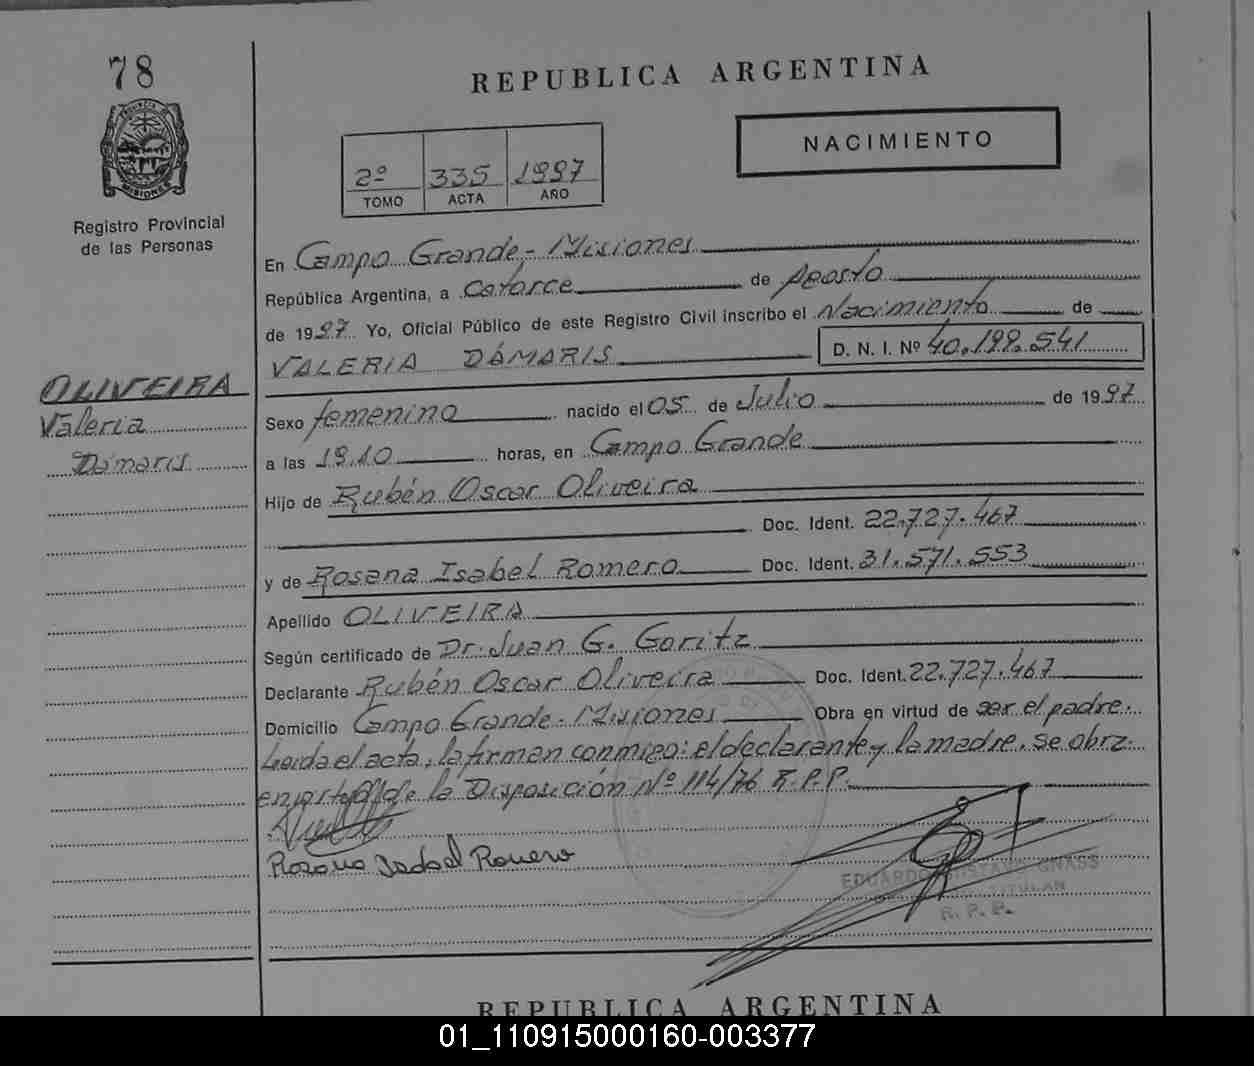 78
REPUBLICA ARGENTINA
PROVINCIA
MISIONES
Registro Provincial
de las Personas
2º 335 1997
TOMO ACTA AÑO
NACIMIENTO
En Campo Grande - Misiones
República Argentina, a Catorce de Agosto
de 1997 Yo, Oficial Público de este Registro Civil inscribo el Nacimiento de
VALERIA DÁMARIS D. N. I. Nº 40.199.541
OLIVEIRA
Valeria
Dámaris
Sexo femenino nacido el 05 de Julio de 1997
a las 19.10 horas, en Campo Grande
Hijo de Rubén Oscar Oliveira
Doc. Ident. 22.727.467
y de Rosana Isabel Romero Doc. Ident. 31.571.553
Apellido OLIVEIRA
Según certificado de Dr. Juan G. Goritz
Declarante Rubén Oscar Oliveira Doc. Ident. 22.727.467
Domicilio Campo Grande - Misiones Obra en virtud de ser el padre.
Leida el acta, la firman conmigo: el declarante y la madre. Se obra
en de la Disposición Nº 114/76 R.P.P.
Rosana Isabel Romero
EDUARDO GUSTAVO GNASS
TITULAR
R. P. P.
REPUBLICA ARGENTINA
01_110915000160-003377